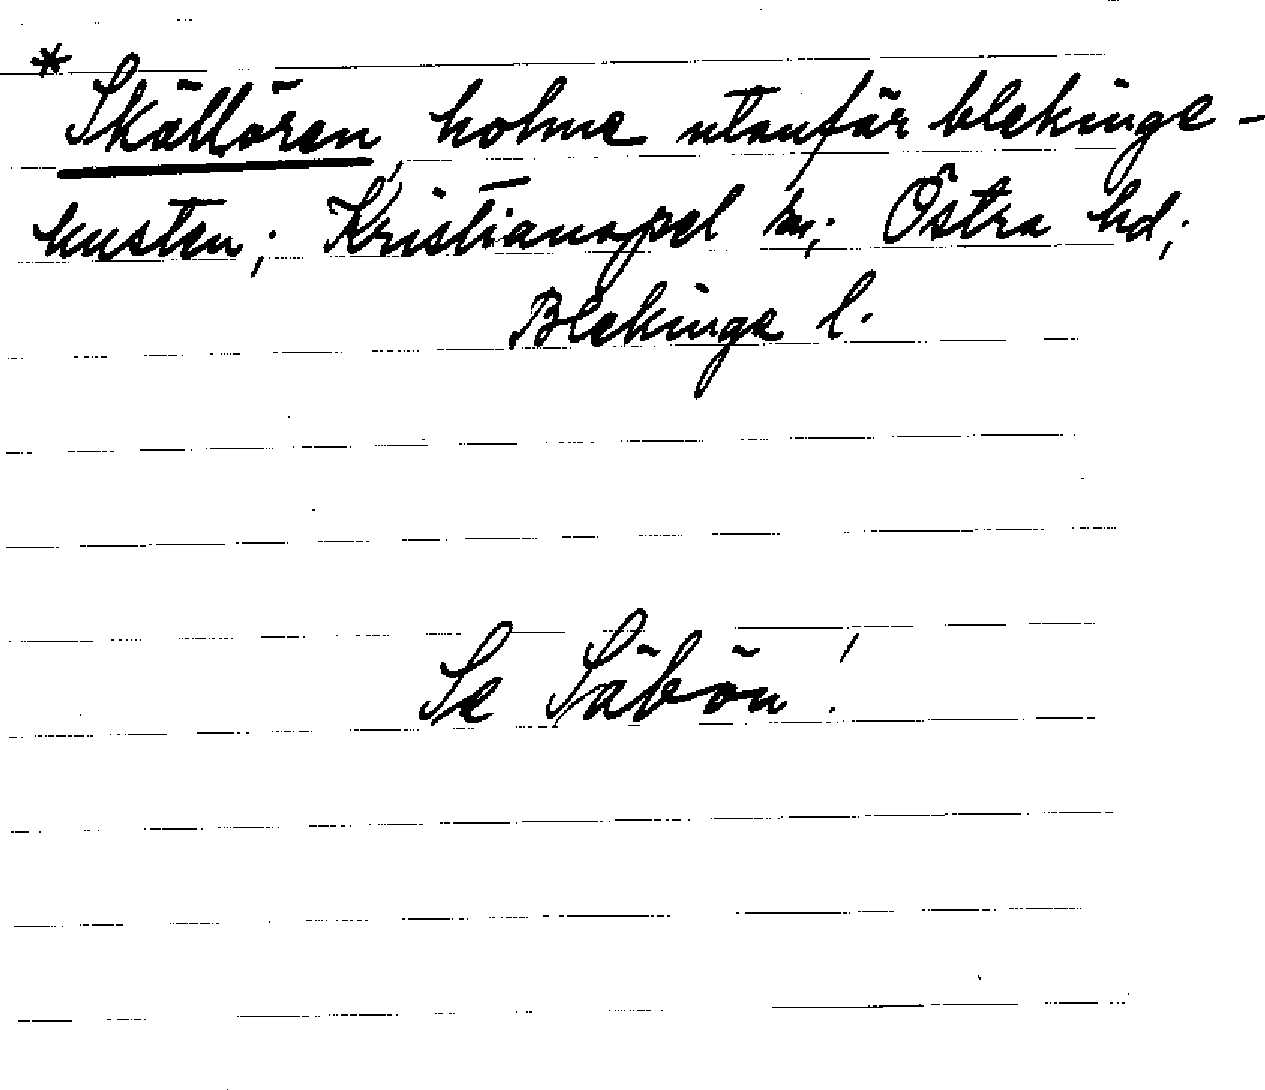 * Skällören, holme utanför blekinge-
kusten; Kristianopel sn; Östra hd;
Blekinge l.
Se Säbön!